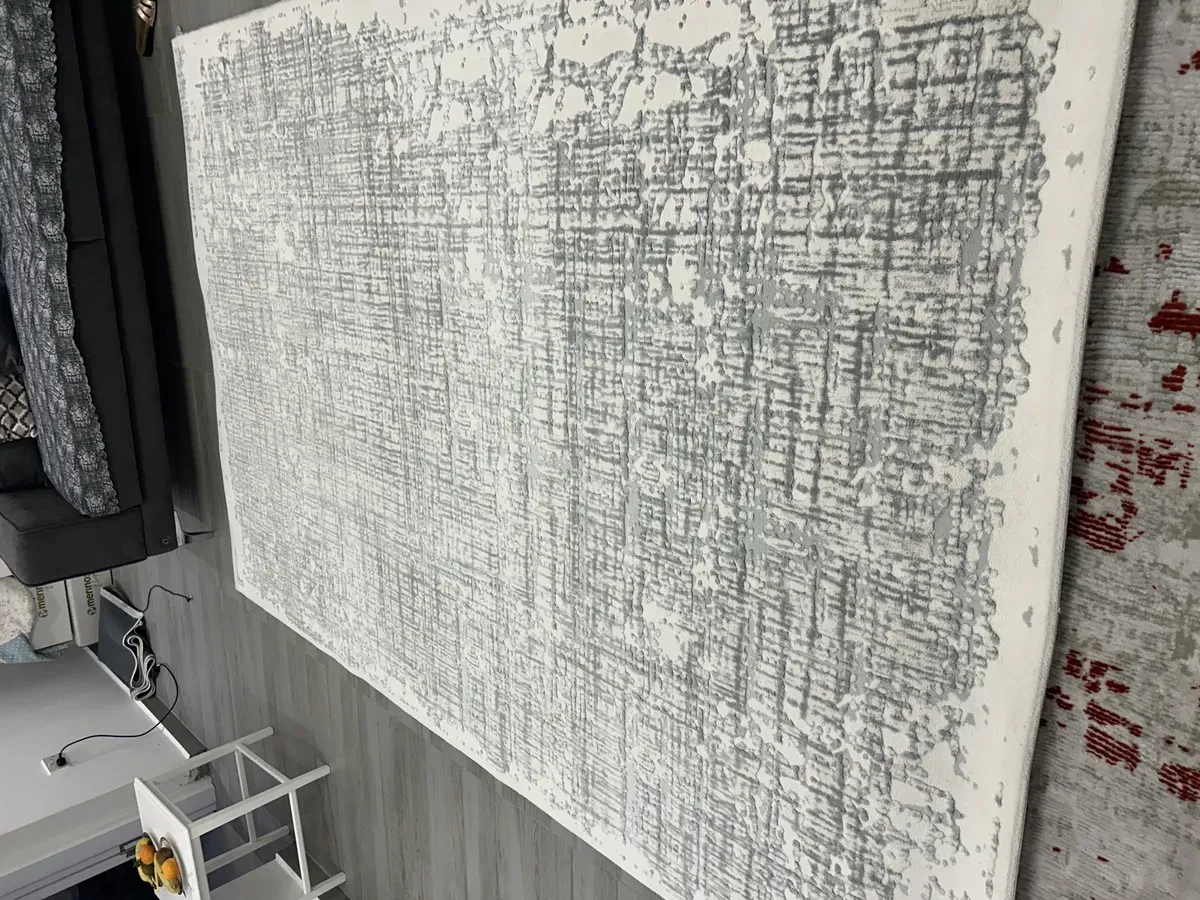 merino
merino